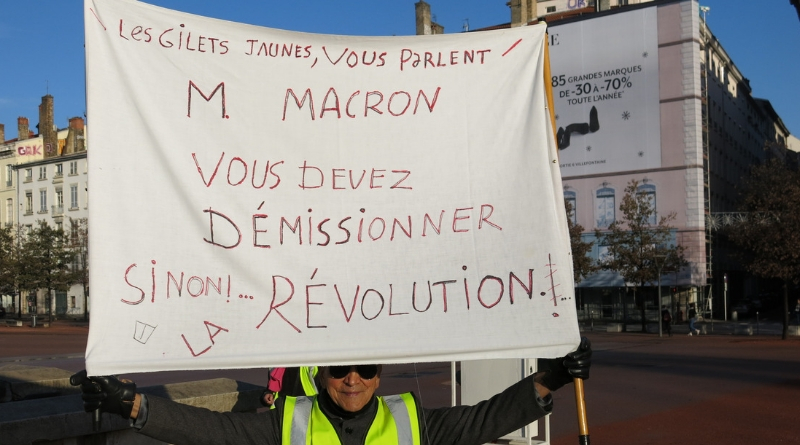 Les GILETS JAUNES, VOUS PARLENT
M. MACRON
VOUS DEVEZ
DÉMISSIONNER
SINON!... RÉVOLUTION.!...
LA
85 GRANDES MARQUES
DE -30 À -70%
TOUTE L'ANNÉE*